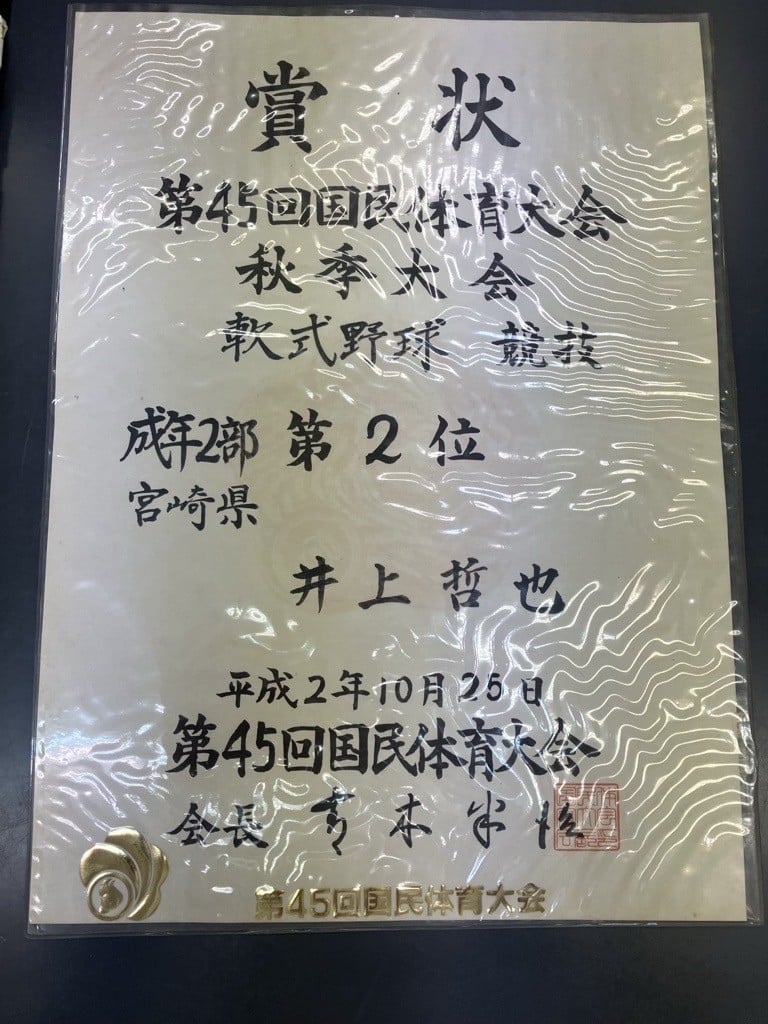 賞状
第45回国民体育大会
秋季大会
軟式野球 競技
成年2部 第2位
宮崎県
井上哲也
平成2年10月25日
第45回国民体育大会
会長 青木半治
第45回国民体育大会